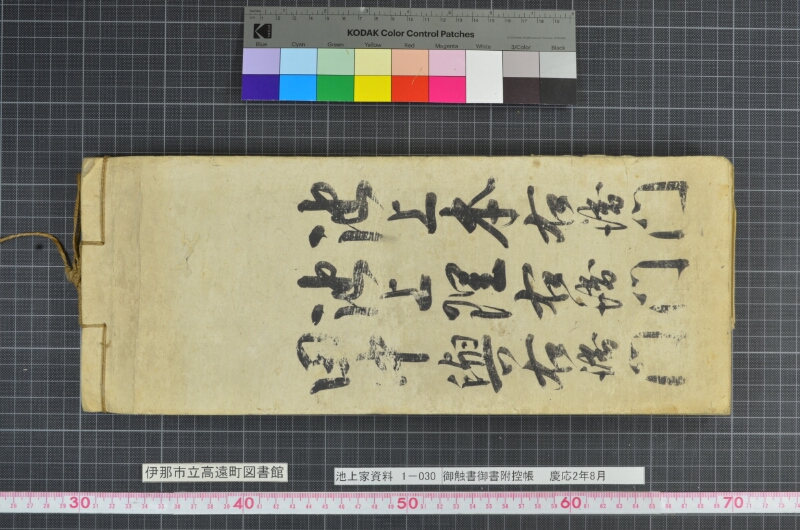 KODAK Color Control Patches
Blue Cyan Green Yellow Red Magenta White 3/Color Black
池上本右衛門
池上理右衛門
右衛門
伊那市立高遠町図書館
池上家資料 1-030 御触書御書附控帳 慶応2年8月
30 40 50 60 70